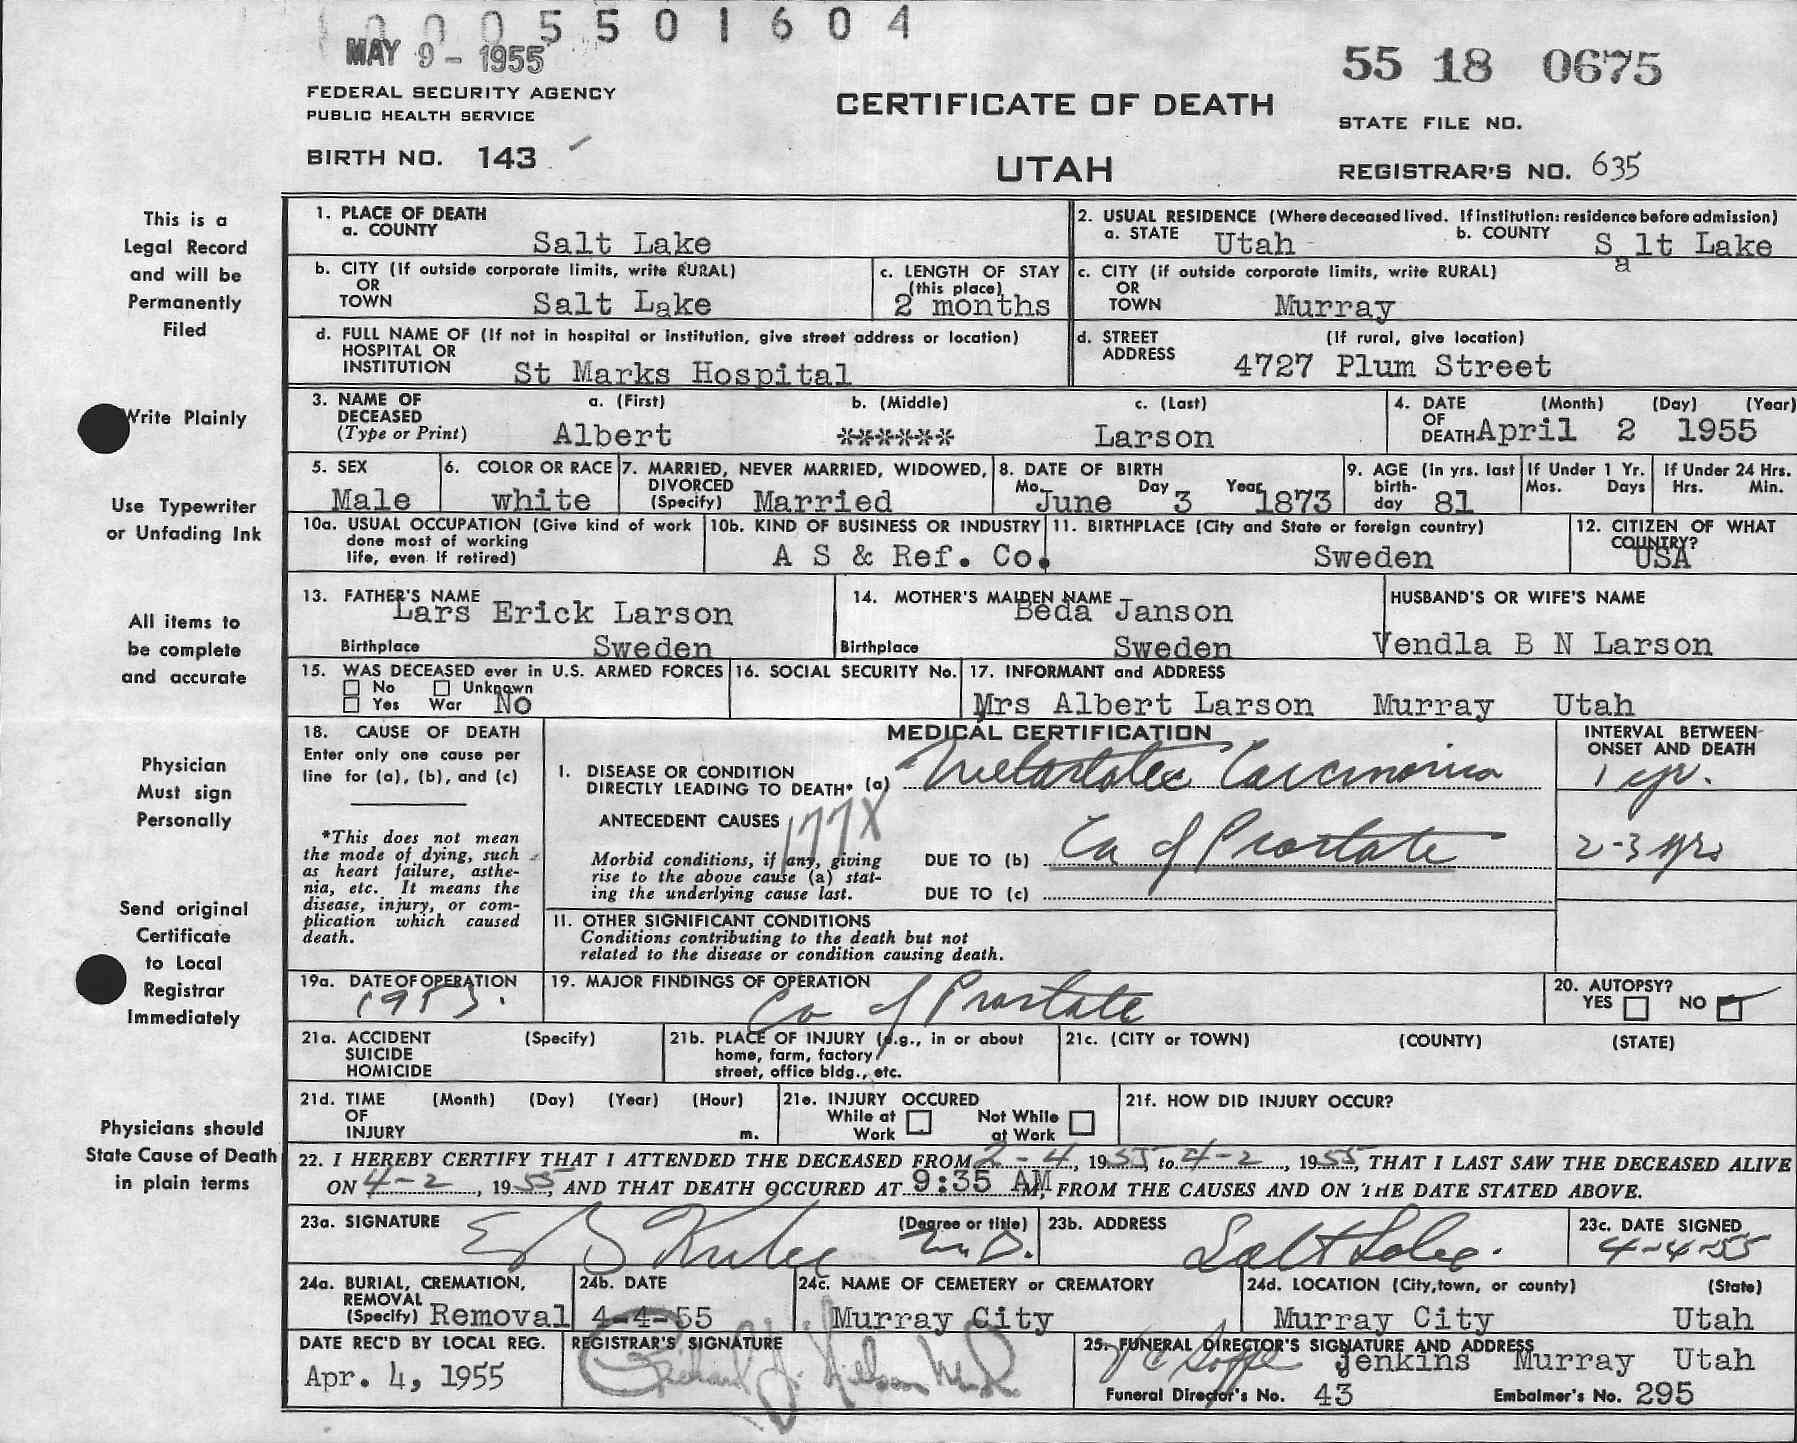 0005501604
MAY 9 - 1955
55 18 0675
FEDERAL SECURITY AGENCY
PUBLIC HEALTH SERVICE
CERTIFICATE OF DEATH
STATE FILE NO.
BIRTH NO. 143
UTAH
REGISTRAR'S NO. 635
This is a
Legal Record
and will be
Permanently
Filed
Write Plainly
Use Typewriter
or Unfading Ink
All items to
be complete
and accurate
Physician
Must sign
Personally
Send original
Certificate
to Local
Registrar
Immediately
Physicians should
State Cause of Death
in plain terms
1. PLACE OF DEATH
a. COUNTY
Salt Lake
2. USUAL RESIDENCE (Where deceased lived. If institution: residence before admission)
a. STATE Utah b. COUNTY Salt Lake
b. CITY (If outside corporate limits, write RURAL)
OR
TOWN Salt Lake
c. LENGTH OF STAY
(this place)
2 months
c. CITY (if outside corporate limits, write RURAL)
OR
TOWN Murray
d. FULL NAME OF (If not in hospital or institution, give street address or location)
HOSPITAL OR
INSTITUTION St Marks Hospital
d. STREET (If rural, give location)
ADDRESS 4727 Plum Street
3. NAME OF DECEASED (Type or Print)
a. (First) b. (Middle) c. (Last)
Albert ****** Larson
4. DATE OF DEATH (Month) (Day) (Year)
April 2 1955
5. SEX
Male
6. COLOR OR RACE
white
7. MARRIED, NEVER MARRIED, WIDOWED,
DIVORCED
(Specify) Married
8. DATE OF BIRTH
Mo. June Day 3 Year 1873
9. AGE (In yrs. last
birth-
day 81
If Under 1 Yr.
Mos. Days
If Under 24 Hrs.
Hrs. Min.
10a. USUAL OCCUPATION (Give kind of work
done most of working
life, even if retired)
10b. KIND OF BUSINESS OR INDUSTRY
A S & Ref. Co.
11. BIRTHPLACE (City and State or foreign country)
Sweden
12. CITIZEN OF WHAT
COUNTRY?
USA
13. FATHER'S NAME
Lars Erick Larson
Birthplace Sweden
14. MOTHER'S MAIDEN NAME
Beda Janson
Birthplace Sweden
HUSBAND'S OR WIFE'S NAME
Vendla B N Larson
15. WAS DECEASED ever in U.S. ARMED FORCES
No Unknown
Yes War No
16. SOCIAL SECURITY No.
17. INFORMANT and ADDRESS
Mrs Albert Larson Murray Utah
18. CAUSE OF DEATH
Enter only one cause per
line for (a), (b), and (c)
*This does not mean
the mode of dying, such
as heart failure, asthe-
nia, etc. It means the
disease, injury, or com-
plication which caused
death.
MEDICAL CERTIFICATION
INTERVAL BETWEEN
ONSET AND DEATH
I. DISEASE OR CONDITION
DIRECTLY LEADING TO DEATH* (a) Metastatic Carcinoma 1 yr.
ANTECEDENT CAUSES 177X
Morbid conditions, if any, giving
rise to the above cause (a) stat-
ing the underlying cause last.
DUE TO (b) Ca of Prostate 2-3 yrs
DUE TO (c)
II. OTHER SIGNIFICANT CONDITIONS
Conditions contributing to the death but not
related to the disease or condition causing death.
19a. DATE OF OPERATION
1953.
19. MAJOR FINDINGS OF OPERATION
Ca of Prostate
20. AUTOPSY?
YES NO
21a. ACCIDENT (Specify)
SUICIDE
HOMICIDE
21b. PLACE OF INJURY (e.g., in or about
home, farm, factory
street, office bldg., etc.
21c. (CITY or TOWN) (COUNTY) (STATE)
21d. TIME (Month) (Day) (Year) (Hour)
OF
INJURY m.
21e. INJURY OCCURED
While at Work Not While at Work
21f. HOW DID INJURY OCCUR?
22. I HEREBY CERTIFY THAT I ATTENDED THE DECEASED FROM 2-4, 1955, to 4-2, 1955, THAT I LAST SAW THE DECEASED ALIVE
ON 4-2, 1955, AND THAT DEATH OCCURED AT 9:35 AM M, FROM THE CAUSES AND ON THE DATE STATED ABOVE.
23a. SIGNATURE (Degree or title)
M.D.
23b. ADDRESS
Salt Lake.
23c. DATE SIGNED
4-4-55
24a. BURIAL, CREMATION,
REMOVAL
(Specify) Removal
24b. DATE
4-4-55
24c. NAME OF CEMETERY or CREMATORY
Murray City
24d. LOCATION (City, town, or county) (State)
Murray City Utah
DATE REC'D BY LOCAL REG.
Apr. 4, 1955
REGISTRAR'S SIGNATURE
25. FUNERAL DIRECTOR'S SIGNATURE AND ADDRESS
Jenkins Murray Utah
Funeral Director's No. 43 Embalmer's No. 295